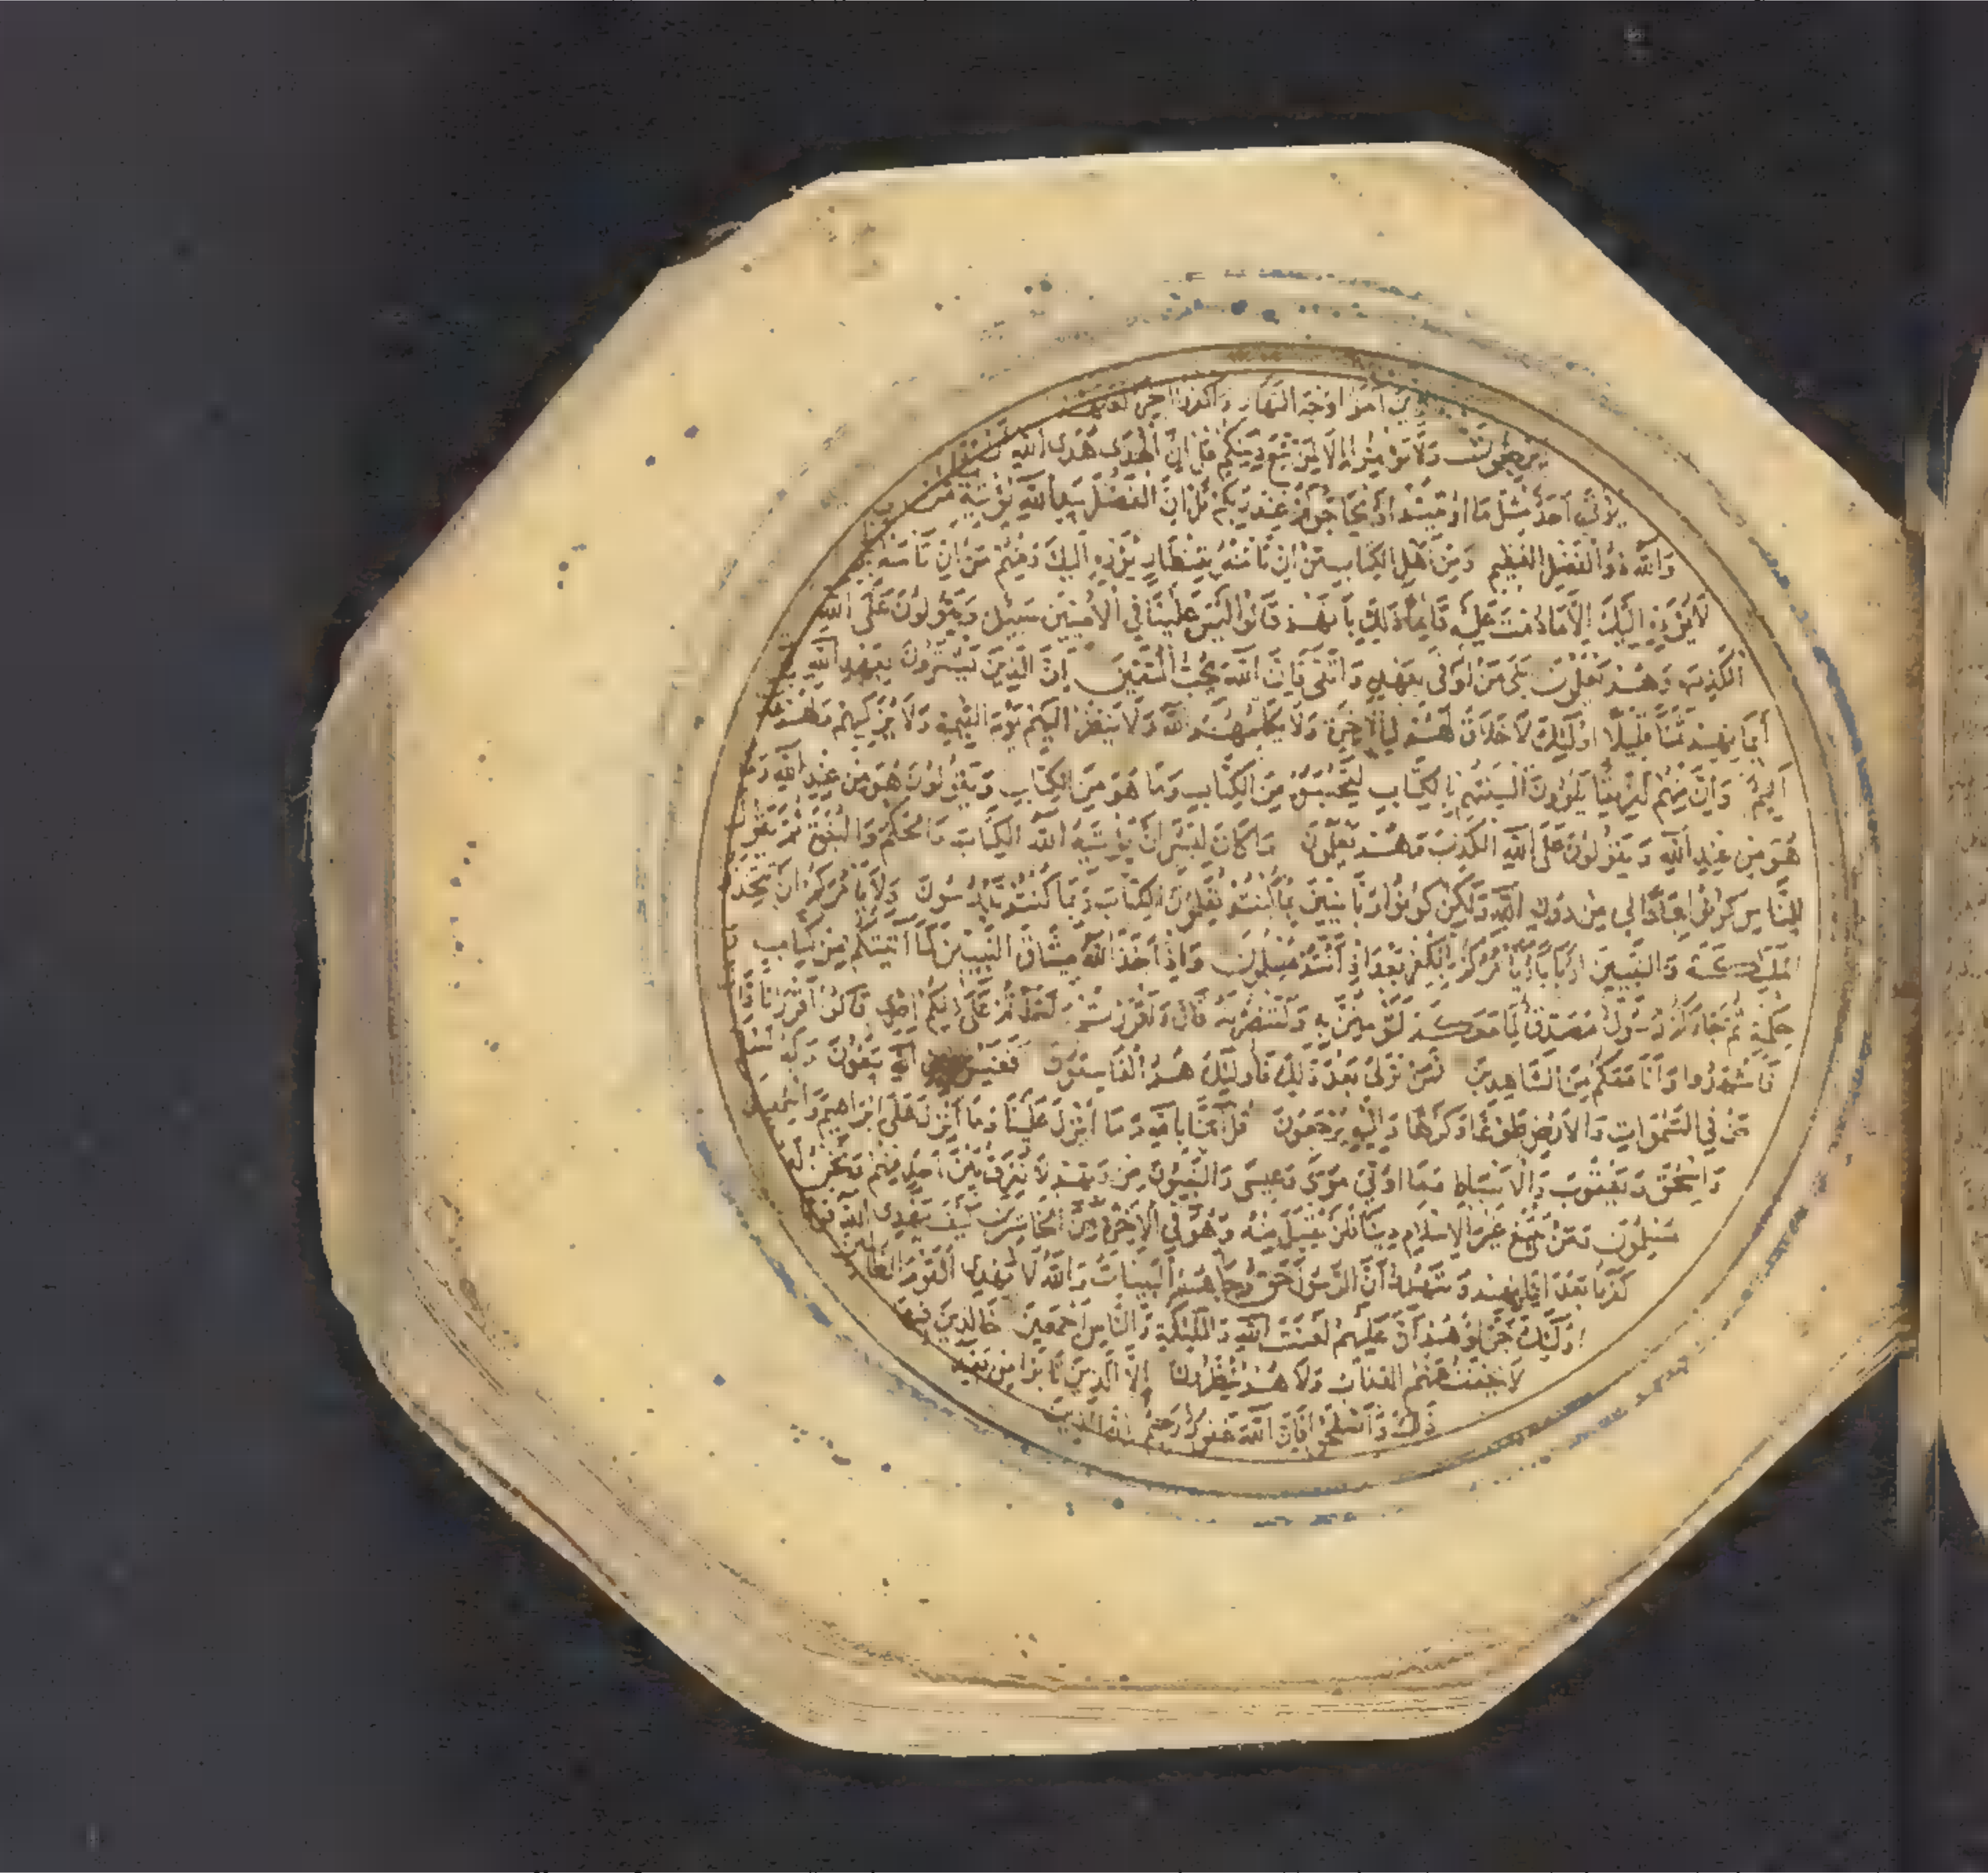 امنوا وجه النهار واكفروا اخره لعلهم
يرجعون ولا تؤمنوا الا لمن تبع دينكم قل ان الهدى هدى الله ان
يؤتى احد مثل ما اوتيتم او يحاجوكم عند ربكم قل ان الفضل بيد الله يؤتيه من
والله ذو الفضل العظيم ومن اهل الكتاب من ان تامنه بقنطار يؤده اليك ومنهم من ان تامنه
لا يؤده اليك الا ما دمت عليه قائما ذلك بانهم قالوا ليس علينا في الاميين سبيل ويقولون على الله
الكذب وهم يعلمون بلى من اوفى بعهده واتقى فان الله يحب المتقين ان الذين يشترون بعهد الله
ايمانهم ثمنا قليلا اولئك لا خلاق لهم في الاخرة ولا يكلمهم الله ولا ينظر اليهم يوم القيمة ولا يزكيهم ولهم
اليم وان منهم لفريقا يلوون السنتهم بالكتاب لتحسبوه من الكتاب وما هو من الكتاب ويقولون هو من عند الله وما
هو من عند الله ويقولون على الله الكذب وهم يعلمون ما كان لبشر ان يؤتيه الله الكتاب والحكم والنبوة ثم يقول
للناس كونوا عبادا لي من دون الله ولكن كونوا ربانيين بما كنتم تعلمون الكتاب وبما كنتم تدرسون ولا يامركم ان تتخذوا
الملئكة والنبيين اربابا ايامركم بالكفر بعد اذ انتم مسلمون واذ اخذ الله ميثاق النبيين لما اتيتكم من كتاب
حكمة ثم جاءكم رسول مصدق لما معكم لتؤمنن به ولتنصرنه قال ءاقررتم واخذتم على ذلكم اصري قالوا اقررنا قال
فاشهدوا وانا معكم من الشاهدين فمن تولى بعد ذلك فاولئك هم الفاسقون افغير دين الله يبغون وله اسلم
من في السموات والارض طوعا وكرها واليه يرجعون قل امنا بالله وما انزل علينا وما انزل على ابراهيم واسمعيل
واسحق ويعقوب والاسباط وما اوتي موسى وعيسى والنبيون من ربهم لا نفرق بين احد منهم ونحن له
مسلمون ومن يبتغ غير الاسلام دينا فلن يقبل منه وهو في الاخرة من الخاسرين كيف يهدي الله قوما
كفروا بعد ايمانهم وشهدوا ان الرسول حق وجاءهم البينات والله لا يهدي القوم الظالمين
اولئك جزاؤهم ان عليهم لعنت الله والملئكة والناس اجمعين خالدين فيها
لا يخفف عنهم العذاب ولا هم ينظرون الا الذين تابوا من بعد
ذلك واصلحوا فان الله غفور رحيم ان الذين